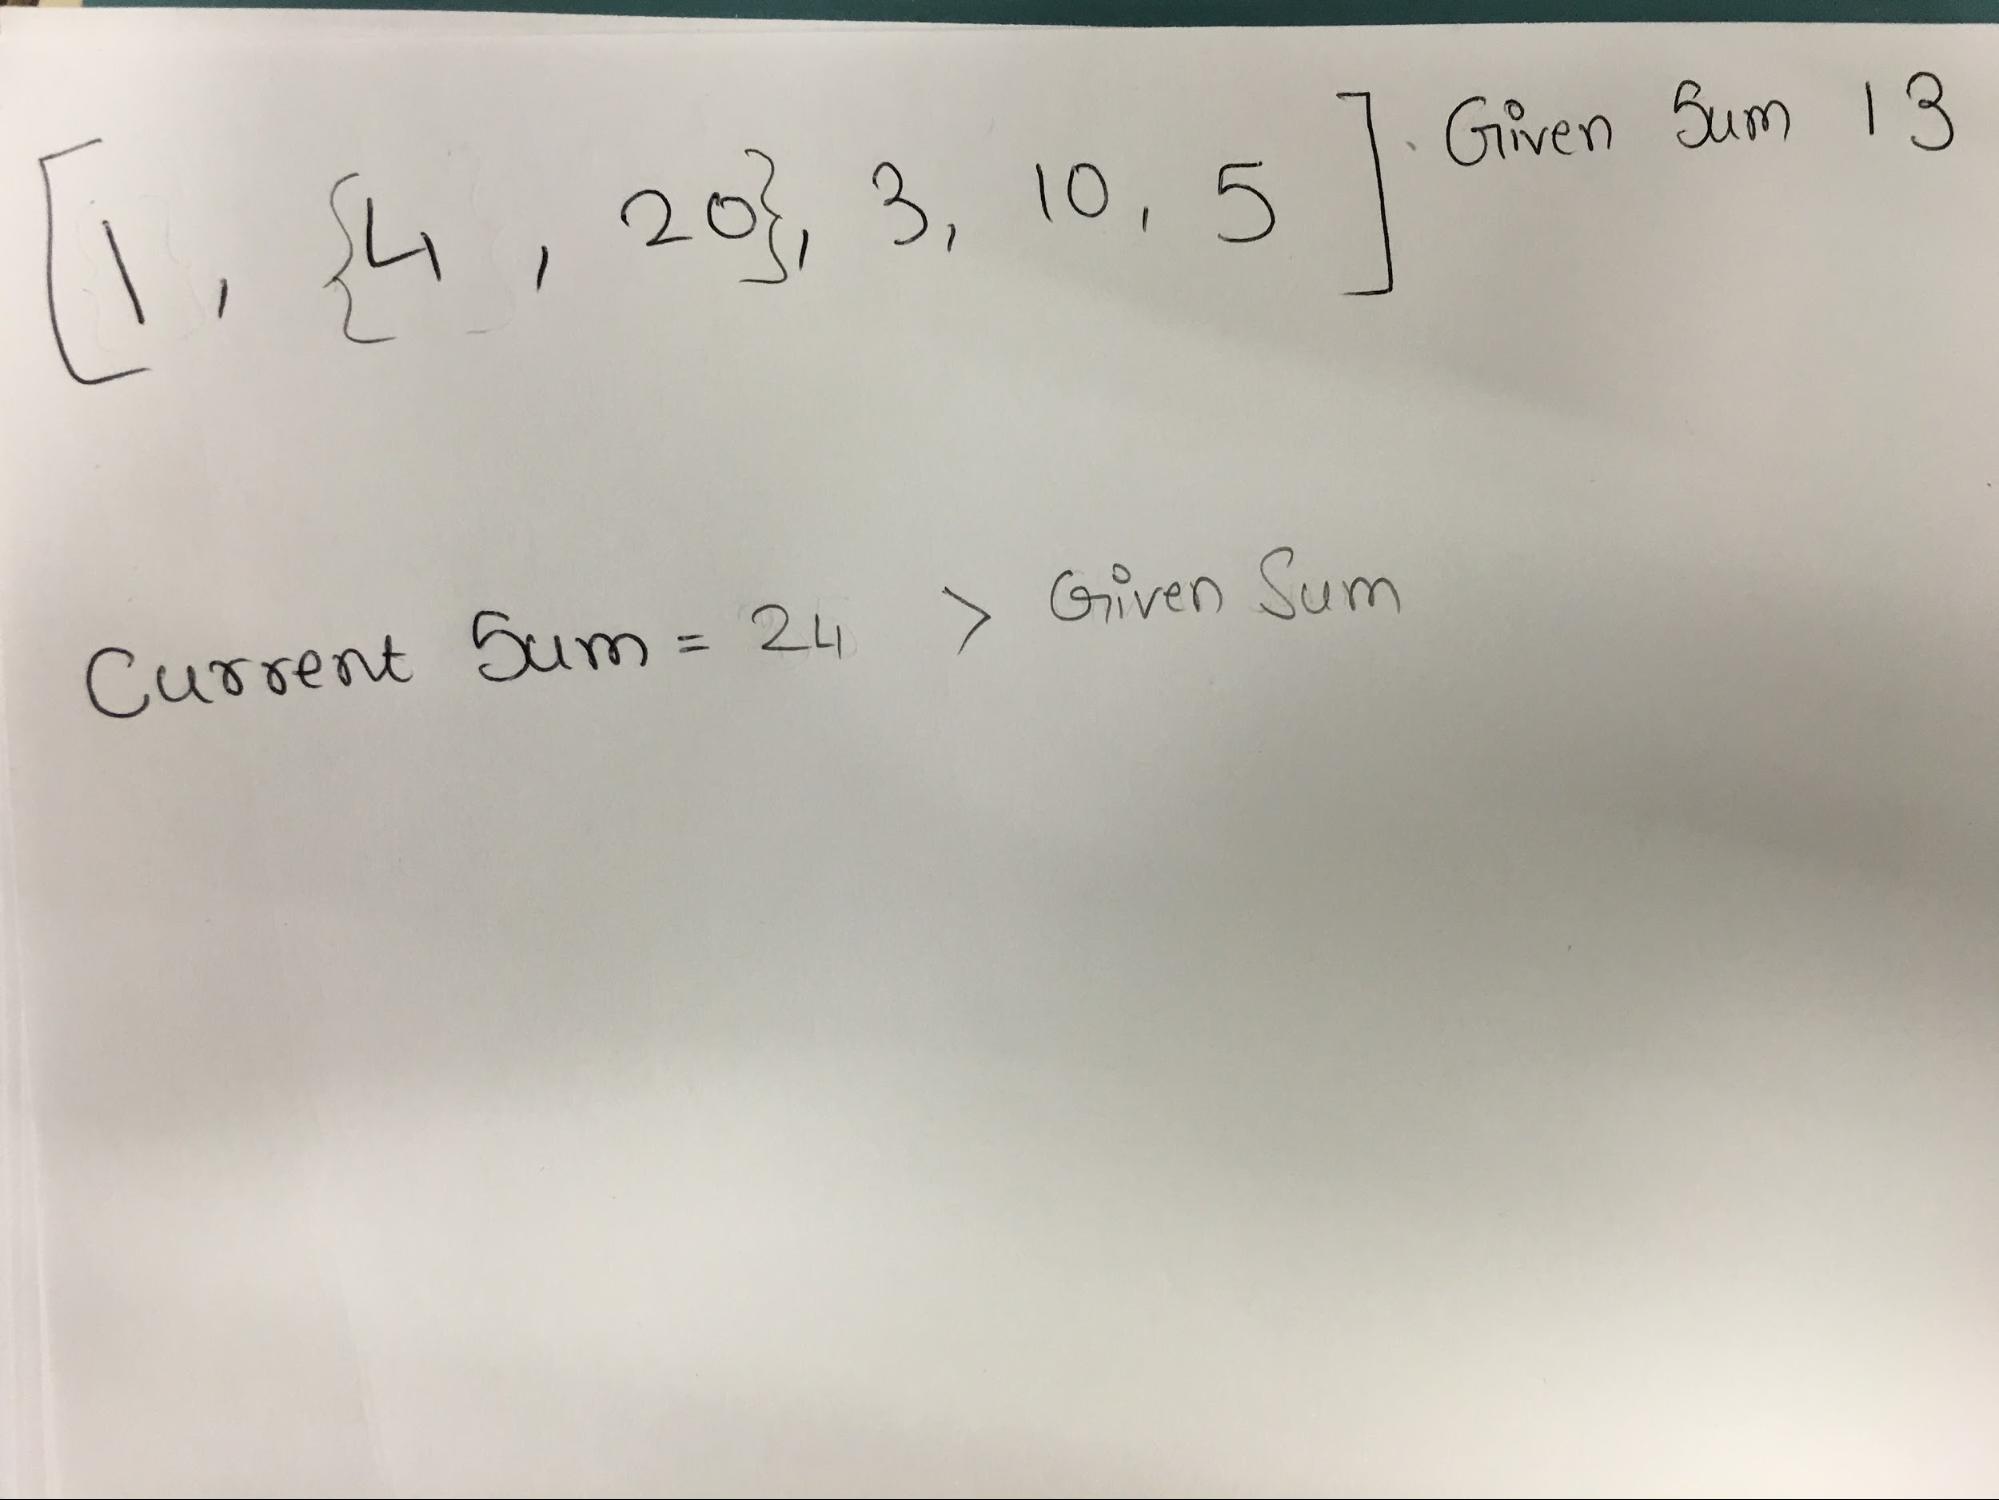 [1, {4, 20}, 3, 10, 5] Given Sum 13
Current Sum = 24 > Given Sum